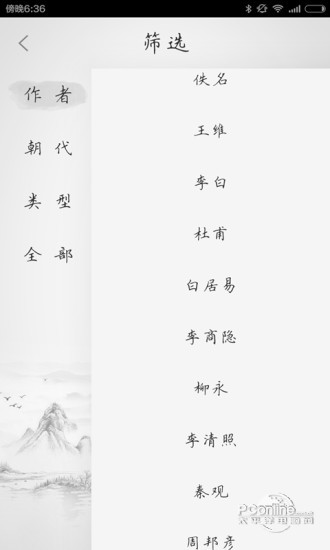 傍晚6:36
筛选
作者
朝代
类型
全部
佚名
王维
李白
杜甫
白居易
李商隐
柳永
李清照
秦观
周邦彦
PConline
太平洋电脑网